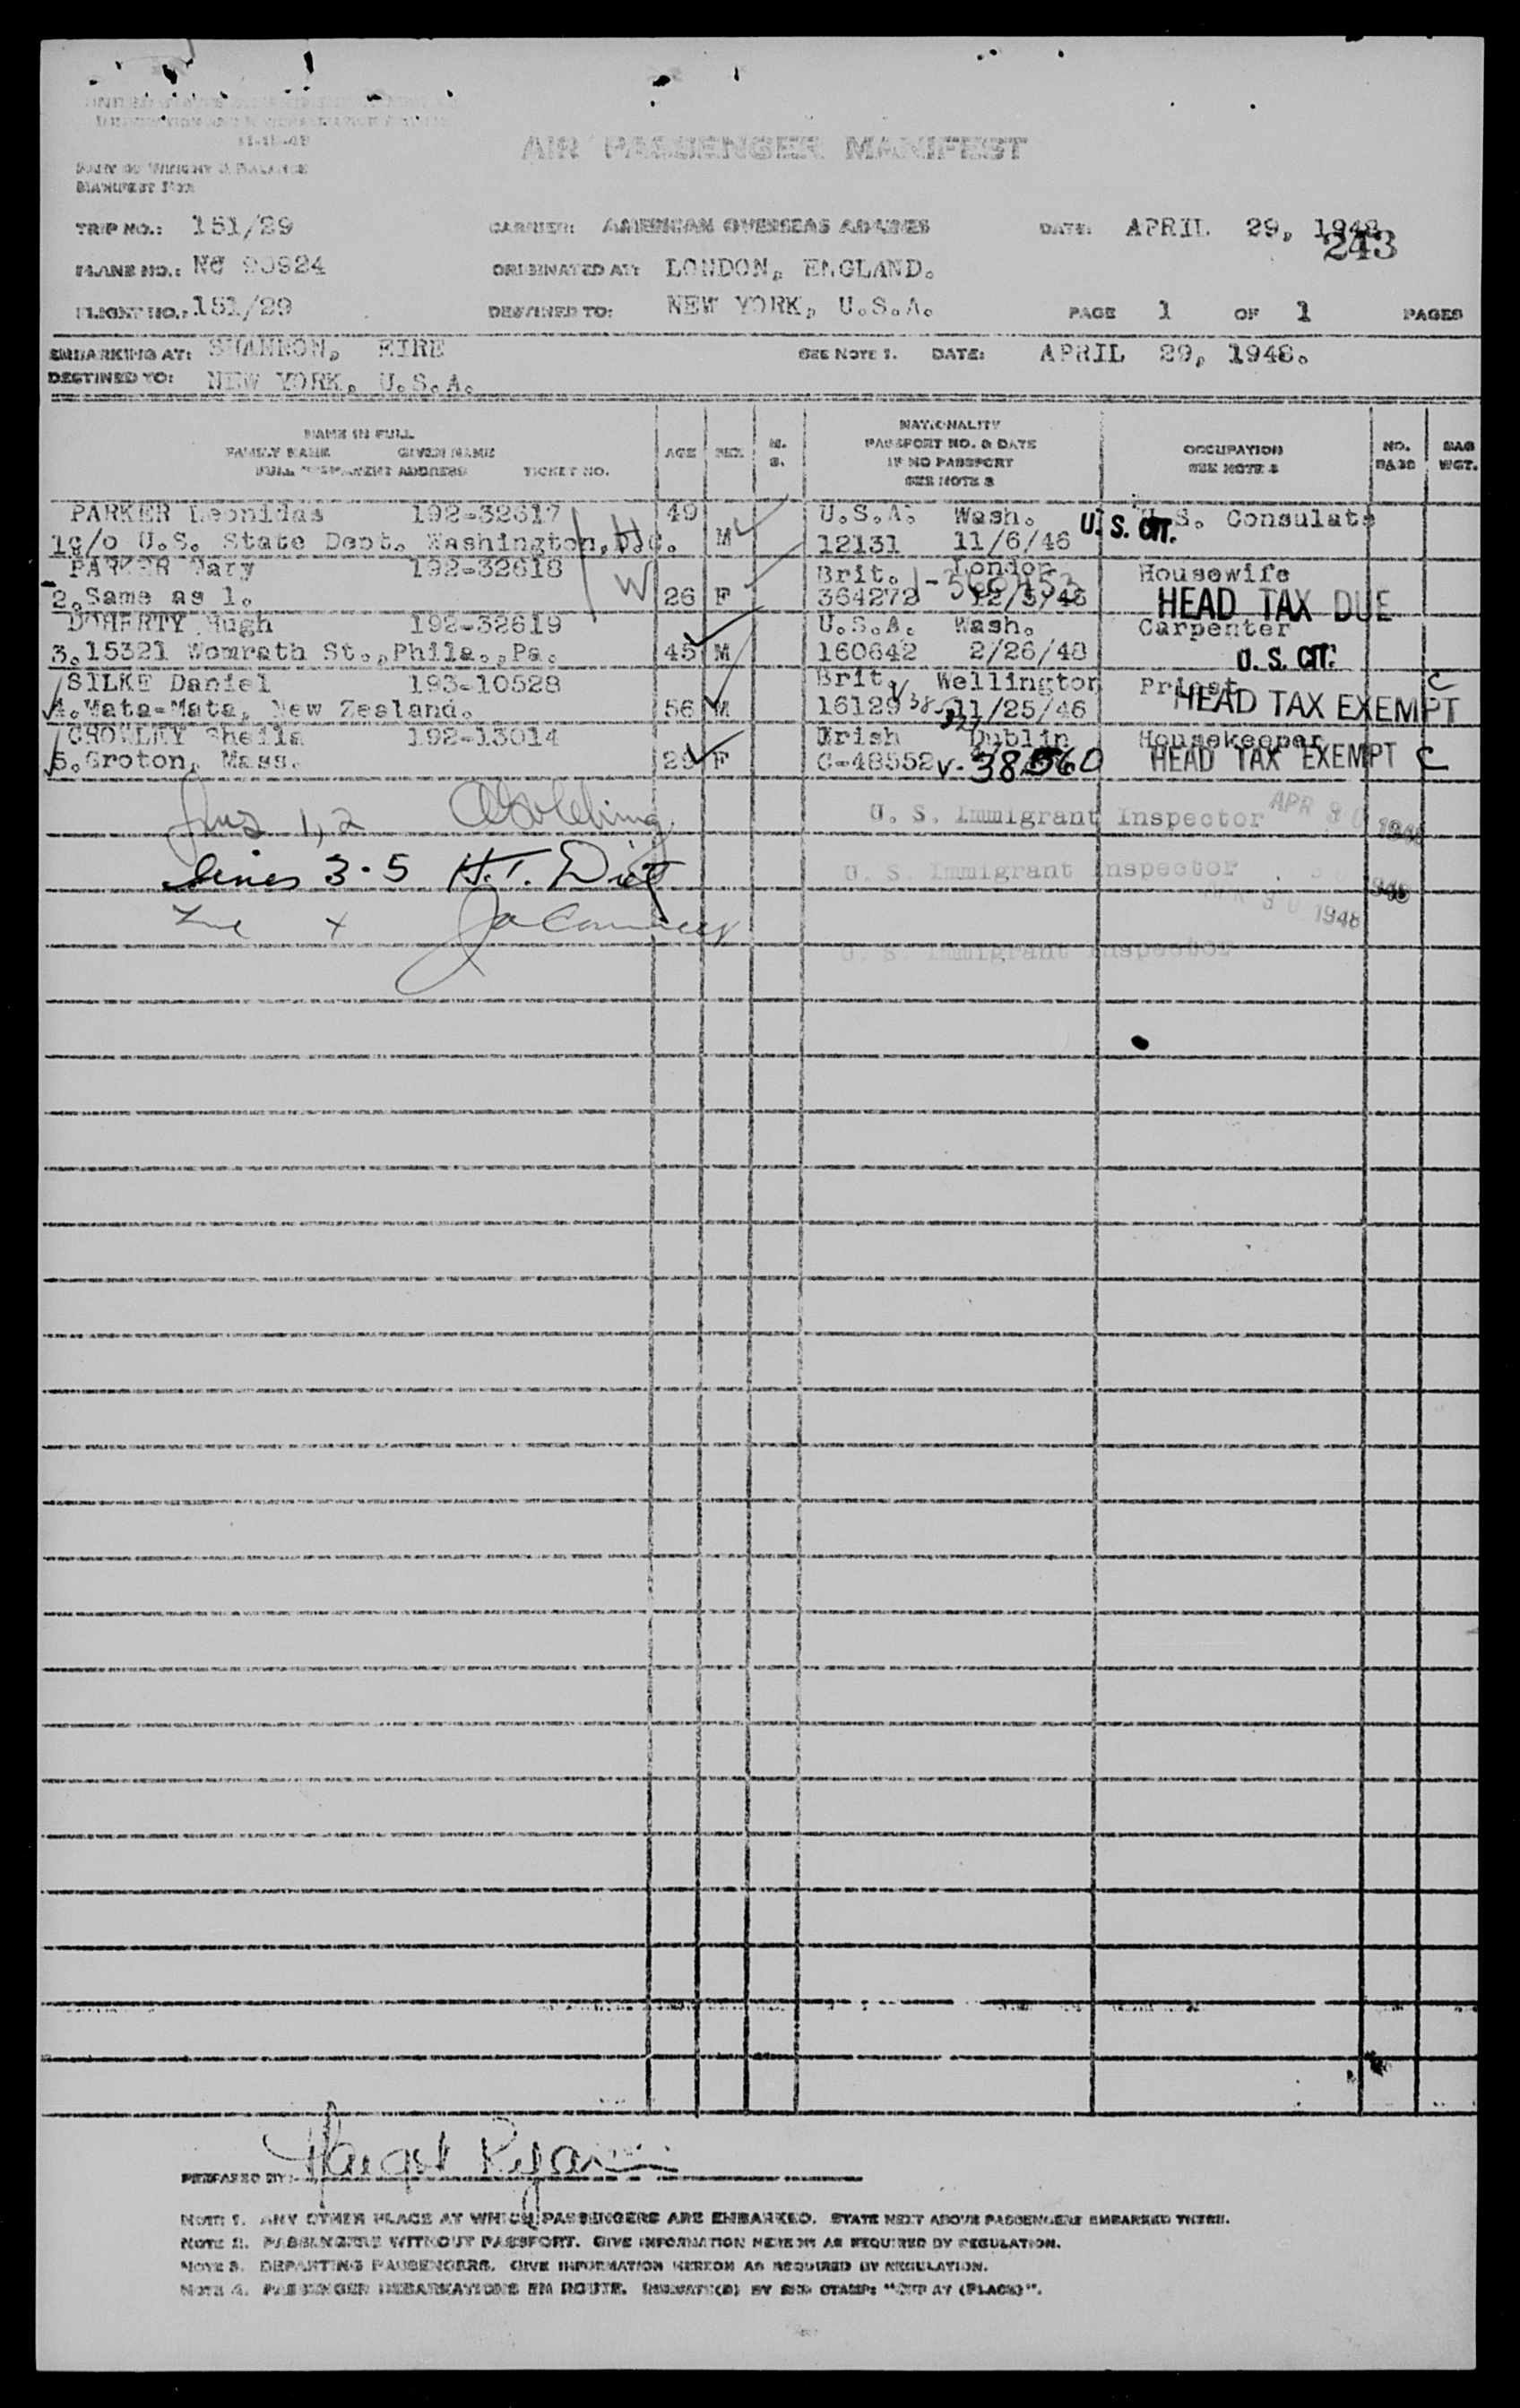 AIR PASSENGER MANIFEST
PART OF WEIGHT & BALANCE
MANIFEST FOR
TRIP NO.: 151/29 CARRIER: AMERICAN OVERSEAS AIRLINES DATE: APRIL 29, 1948
243
PLANE NO.: NC 90924 ORIGINATED AT: LONDON, ENGLAND.
FLIGHT NO.: 151/29 DESTINED TO: NEW YORK, U.S.A. PAGE 1 OF 1 PAGES
EMBARKING AT: SHANNON, EIRE SEE NOTE 1. DATE: APRIL 29, 1948.
DESTINED TO: NEW YORK, U.S.A.
NAME IN FULL
FAMILY NAME GIVEN NAME
FULL PERMANENT ADDRESS TICKET NO.
AGE SEX M. S.
NATIONALITY
PASSPORT NO. & DATE
IF NO PASSPORT
SEE NOTE 2
OCCUPATION
SEE NOTE 3
NO. BAGS
BAG WGT.
PARKER Leonidas 192-32617 49 U.S.A. Wash. U.S. Consulate
1. c/o U.S. State Dept. Washington, D.C. M 12131 11/6/46 U.S. CIT.
H
PARKER Mary 192-32618 Brit. London Housewife
2. Same as 1. W 26 F 364272 12/5/46 HEAD TAX DUE
DOHERTY Hugh 192-32619 U.S.A. Wash. Carpenter
3. 15321 Womrath St., Phila., Pa. 45 M 160642 2/26/48 U.S. CIT.
SILKE Daniel 193-10528 Brit. Wellington Priest C
4. Mata-Mata, New Zealand. 56 M 16129 11/25/46 HEAD TAX EXEMPT
CROWLEY Sheila 192-13014 Irish Dublin Housekeeper
5. Groton, Mass. 29 F C-48552 V-38560 HEAD TAX EXEMPT C
1, 2 U. S. Immigrant Inspector APR 30 1948
Lines 3-5 H.T. U. S. Immigrant Inspector 1948
APR 30 1948
U. S. Immigrant Inspector
PREPARED BY: Margot
NOTE 1. ANY OTHER PLACE AT WHICH PASSENGERS ARE EMBARKED. STATE NEXT ABOVE PASSENGERS EMBARKED THERE.
NOTE 2. PASSENGERS WITHOUT PASSPORT. GIVE INFORMATION HEREON AS REQUIRED BY REGULATION.
NOTE 3. DEPARTING PASSENGERS. GIVE INFORMATION HEREON AS REQUIRED BY REGULATION.
NOTE 4. PASSENGER DEBARKATIONS EN ROUTE. INDICATE(D) BY STAMP: "OFF AT (PLACE)".